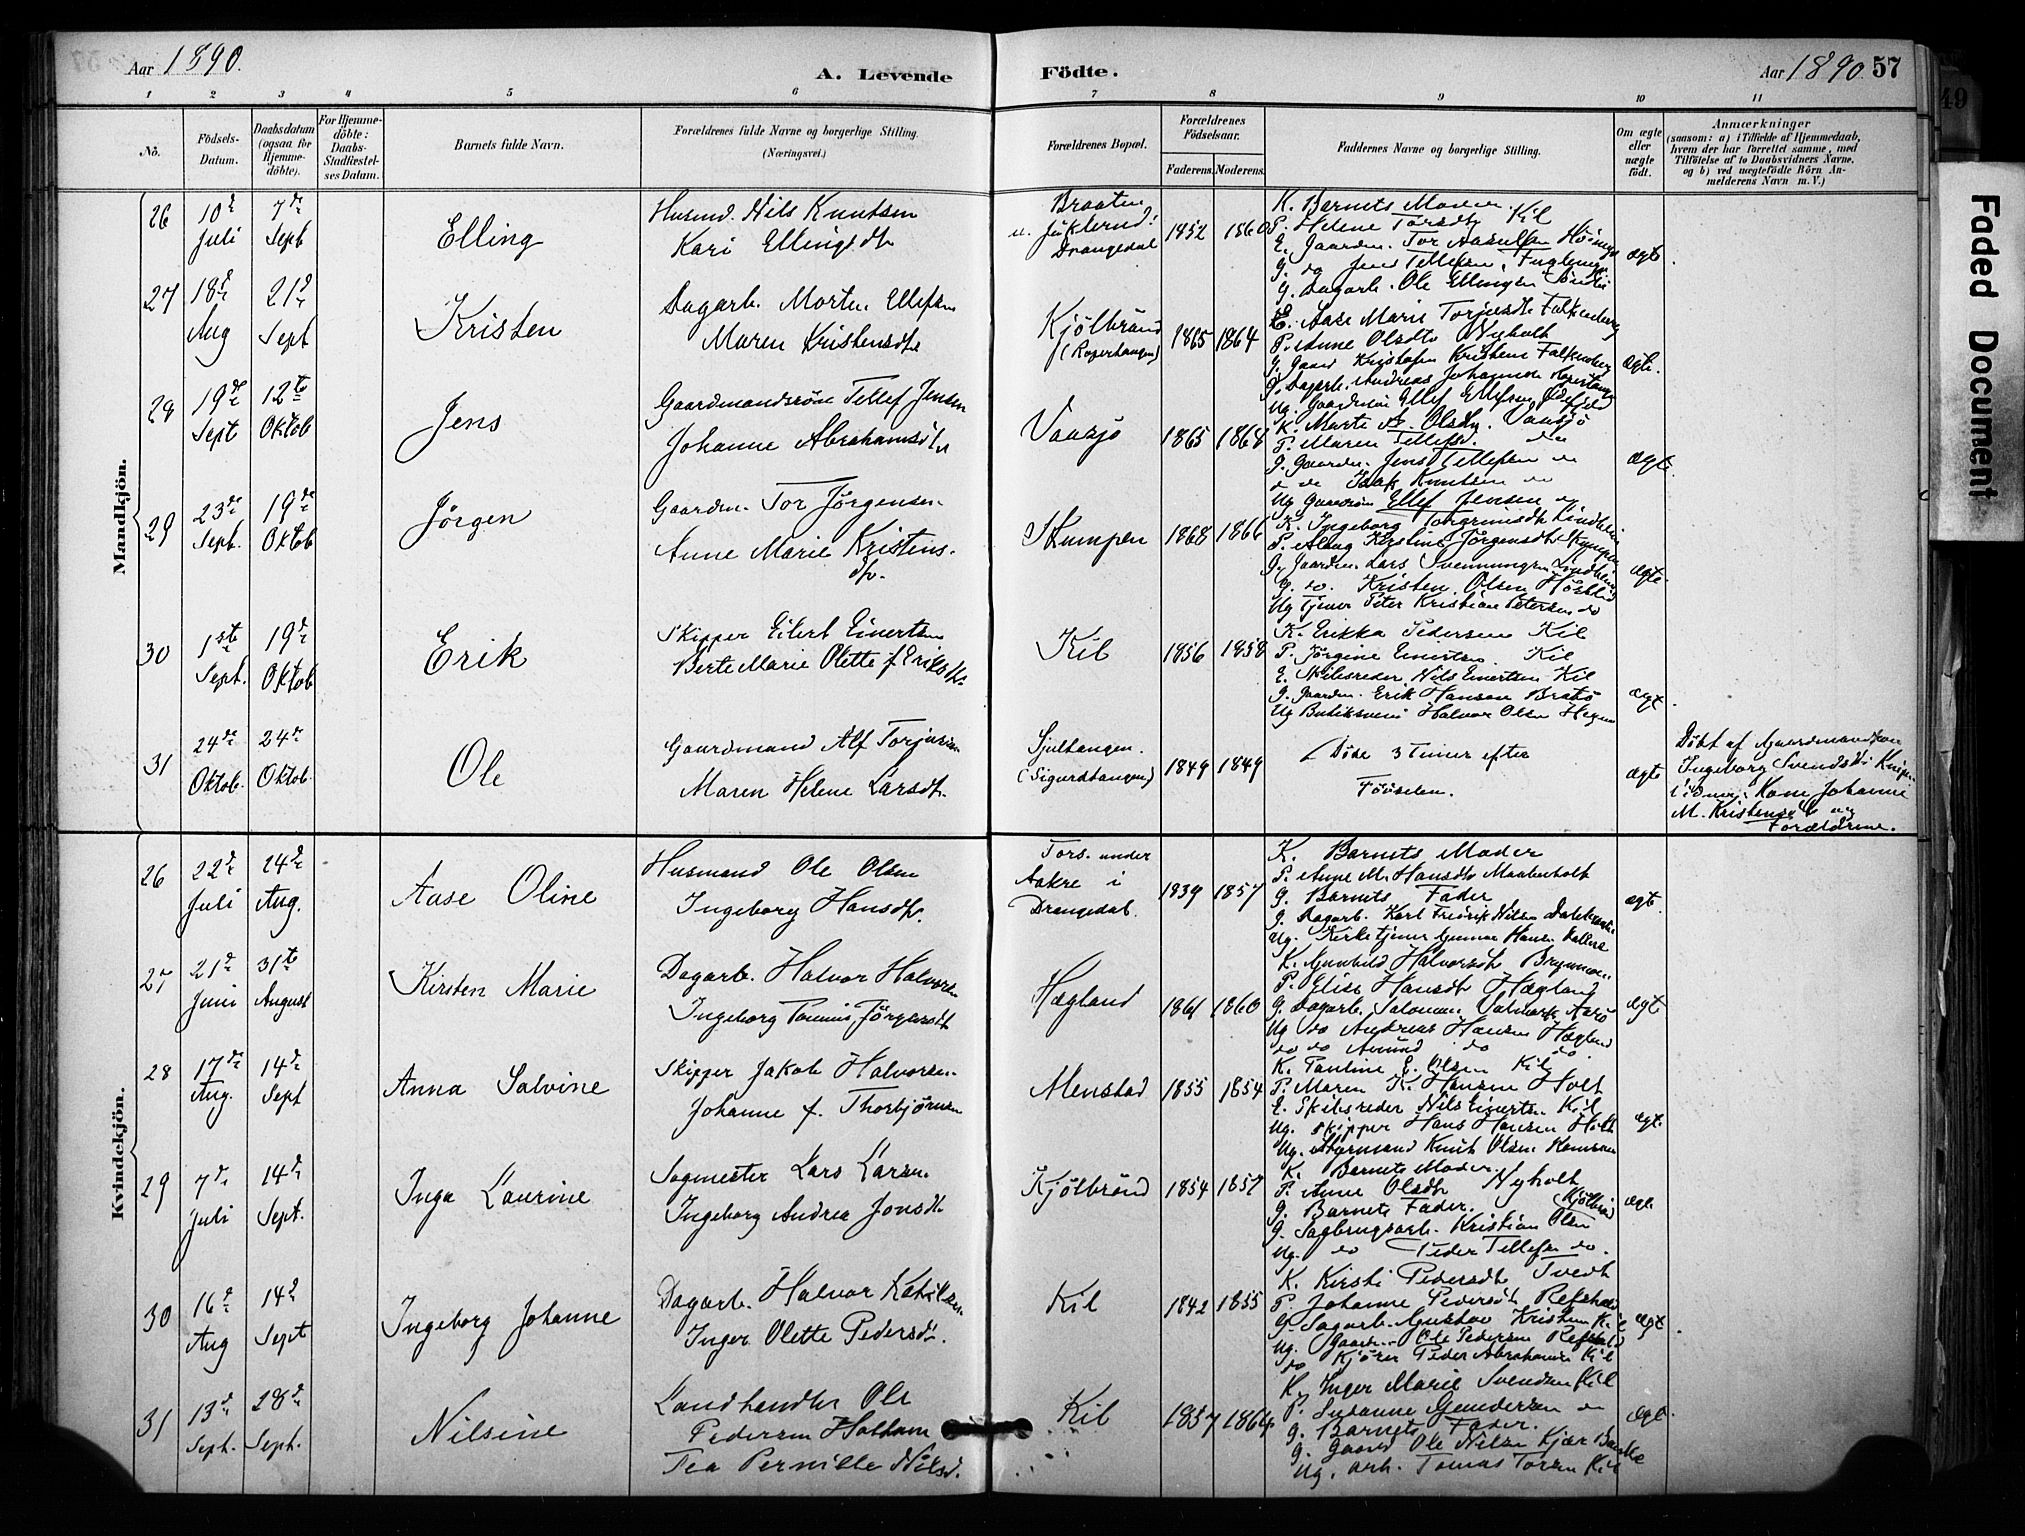 Aar 1890.
A. Levende Födte.
Aar 1890. 57
1 2 3 4 5 6 7 8 9 10 11
No.
Födsels-
Datum.
Daabsdatum
(ogsaa for
Hjemme-
döbte).
For Hjemme-
döbte:
Daabs-
Stadfæstel-
ses Datum.
Barnets fulde Navn.
Forældrenes fulde Navne og borgerlige Stilling.
(Næringsvei.)
Forældrenes Bopæl.
Forældrenes
Födselsaar.
Faderens. Moderens.
Faddernes Navne og borgerlige Stilling.
Om ægte
eller
uægte
födt.
Anmærkninger
(saasom: a) i Tilfælde af Hjemmedaab,
hvem der har forrettet samme, med
Tilföielse af to Daabsvidners Navne,
og b) ved uægtefödte Börn An-
melderens Navn m. V.)
Mandkjön.
26
10de Juli
7de Sept
Elling
Husmd. Nils Knutsen
Kari Ellingsdtr
Braaten
u.
Drangedal
1852 1860
K. Barnets Moder.
P. Helene Torsdtr Kil
E. Gaardm. Tor
G. do Jens Tellefsen,
G. Dagarb. Ole Ellingsen
ægte
27
18de Aug
21de Sept
Kristen
Dagarb. Morten Ellefsen
Maren Kristensdtr
Kjølbrønd
1865 1864
Aase Marie Torjusdtr Falkenberg
P. Anne Olsdtr Nyholt
G. Gaard Kristofer Kristensen Falkenberg
G. Dagarb. Andreas Johannesen
Ug. Ellef Ellefsen
ægte.
28
19de Sept
12te Oktob
Jens
Gaardmandssøn Tellef Jensen
Johanne Abrahamsdtr
Vaasjø
1865 1868
K. Marte Olsdtr. Vaasjø
P. Maren Tellefsd. do
G. Gaardm. Jens Tellefsen do
do do Isak Knutsen do
Ug Gaardsøn Ellef Jensen do
ægte
29
23de Sept.
19de Oktob
Jørgen
Gaardm. Tor Jørgensen
Anne Marie Kristens-
dtr.
Skumpen
1868 1866
K. Ingeborg Torgrimsdtr Lindheim
P. Aslaug Kirstine Jørgensdtr Skumpen
G. Gaardm. Lars Svennungsen Lindheim
G. do. Kristen Olsen
Ug Tjener Peter Kristian Petersen do
ægte
30
1ste Sept.
19de Oktob
Erik
Skipper Eilert Einertsen
Berte Marie Olette f. Eriksdtr.
Kil
1856 1858
K. Erikka Pedersen Kil
P. Jørgine Einertsen. Kil
E. Skibsreder Nils Einertsen Kil
G. Gaardm. Erik Hansen Bratø
Ug Butiksvend Halvor Olsen
ægt.
31
24de Oktob.
24de Oktob.
Ole
Gaardmand Alf Torjusen
Maren Helene Larsdtr.
(Sigurdtangen)
1849 1849
Døde 3 Timer efter
Fødselen.
ægte
Døbt af Gaardmandskone
Ingeborg Svendsdtr
Kone Johanne
M. Kristensdtr og
Forældrene.
Kvindekjön.
26
22de Juli
24de Aug.
Aase Oline
Husmand Ole Olsen
Ingeborg Hansdtr.
Tors. under
Aakre i
Drangedal.
1839 1857
K. Barnets Moder
P. Anne M. Hansdtr
G. Barnets Fader
G. Dagarb. Karl Fredrik Nilsen
Ug. Kirketjener Gunnar Hansen
ægt.
27
21de Juni
31te August
Kirsten Marie
Dagarb. Halvor Halvorsen
Ingeborg Tomine Jørgensdtr
Hægland
1861 1860
K. Gunhild Halvorsdtr
P. Elise Hansdtr Hægland
G. Dagarb. Salomon
Ug do Andreas Hansen Hægland
do do do do.
ægt
28
17de Aug.
14de Sept
Anna Salvine
Skipper Jakob Halvorsen
Johanne f. Thorbjørnsen
Menstad
1855 1854
K. Pauline E. Olsen Kil
P. Maren K. Hansen Holt
E. Skibsreder Nils Einertsen Kil
Ug. Skipper Hans Hansen Holt
Ug. Styrmand Knut Olsen
ægt.
29
7de Juli
14de Sept.
Inga Laurine
Sagmester Lars Larsen
Ingeborg Andrea Jonsdtr
Kjølbrønd
1854 1857
K. Barnets Moder.
P. Anne Olsdtr Nyholt
G. Barnets Fader.
G. Sagbrugsarb. Kristian Olsen Kjølbrønd
Ug. do Peder Tellefsen do.
ægt.
30
16de Aug
14de Sept
Ingeborg Johanne
Dagarb. Halvor Ketilsen
Inger Olette Pedersdtr.
Kil
1842 1855
K. Kirsti Pedersdtr Tvedt
P. Johanne Pedersdtr Refshal
G. Sagarb. Gustav Kristensen Kil
Ug. Gaardm. Ole Pedersen
do Kjører Peder Abrahamsen Kil
ægt.
31
13de Sept.
28de Sept.
Nilsine
Landhandler Ole
Pedersen
Tea Pernille Nilsd.
Kil
1857 1864
K. Inger Marie Svendsen Kil
P. Susanne Gundersen do
G. Barnets Fader.
G. Gaard Ole Nilsen Kjær
Ug. Arb. Tomas Torsen Kil
ægt.
Faded Document
49